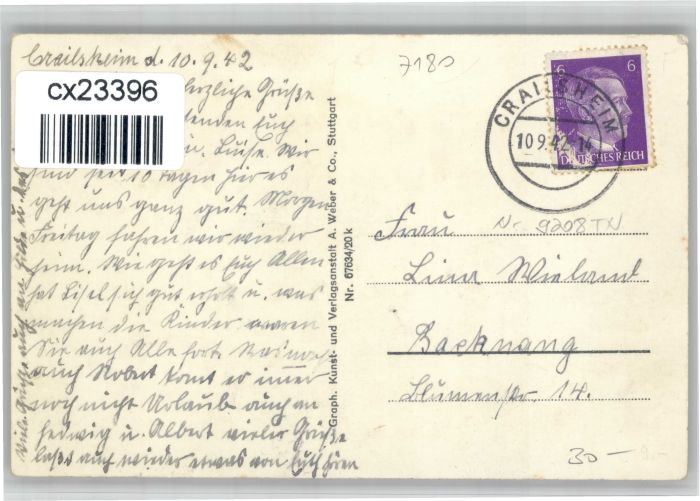 Crailsheim d. 10.9.42
cx23396
herzliche Grüße
senden Euch
u. Luise. Wir
sind seit 10 Tagen hier es
geht uns ganz gut. Morgen
Freitag fahren wir wieder
heim. Wie geht es Euch Allen
hat Lisel sich gut erholt u. was
machen die Kinder waren
Sie auch Alle fort. Was macht
auch Robert kommt er immer
noch nicht Urlaub auch an
Hedwig u. Albert viele Grüße
laßt auch wieder etwas von Euch hören
Viele Grüße auch an
Graph. Kunst- und Verlagsanstalt A. Weber & Co., Stuttgart
Nr. 67634/20 k
7180
6 6
DEUTSCHES REICH
CRAILSHEIM
10.9.42.-14
Nr. 9208 TN
Frau
Lina Wieland
Backnang
Blumenstr. 14.
30–